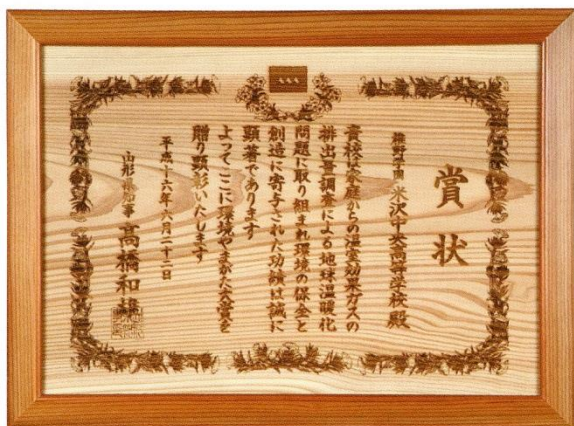 賞状
学園 米沢中央高等学校殿
貴校は家庭からの温室効果ガスの
排出量調査による地球温暖化
問題に取り組まれ環境の保全と
創造に寄与された功績は誠に
顕著であります
よってここに環境やまがた大賞を
贈り顕彰いたします
平成十六年六月二十二日
山形県知事 高橋和雄